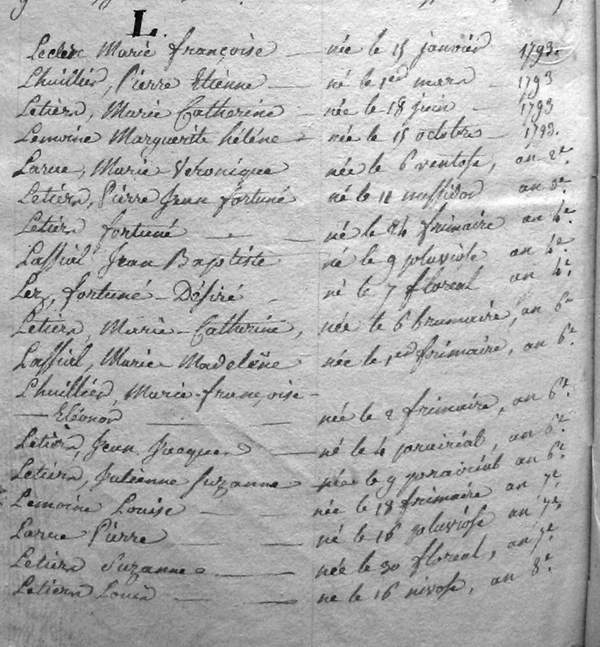 L.
Leclerc Marie françoise — née le 15 janvier 1793.
Lhuillier, Pierre Etienne — né le 1er mars — 1793
Letiers, Marie Catherine — née le 18 juin — 1793
Lemoine Marguerite hélène — née le 15 octobre — 1793.
Larue, Marie Veronique née le 6 ventose, an 2e.
Letiers, Pierre Jean fortuné né le 11 messidor an 3e.
Letiers fortuné — né le 24 frimaire an 4e.
Lassiel Jean Baptiste né le 9 pluviôse an 4e.
Ley, fortuné-Désiré né le 7 floreal an 4e.
Letiers, Marie-Catherine, née le 6 brumaire, an 6e
Lassiel, Marie Madeleine née le 1er frimaire, an 6e.
Lhuillier, Marie-françoise-
— Eléonor — née le 2 frimaire, an 6e.
Letiers, Jean Jacques — né le 4 prairéal, an 6e.
Letiers, Julienne Suzanne — née le 9 prairéal an 6e.
Lemoine Louise — née le 18 frimaire an 7e.
Larue Pierre — né le 16 pluviose an 7e.
Letiers Suzanne — née le 30 floreal, an 7e.
Letiers Louis — né le 16 nivose, an 8e.